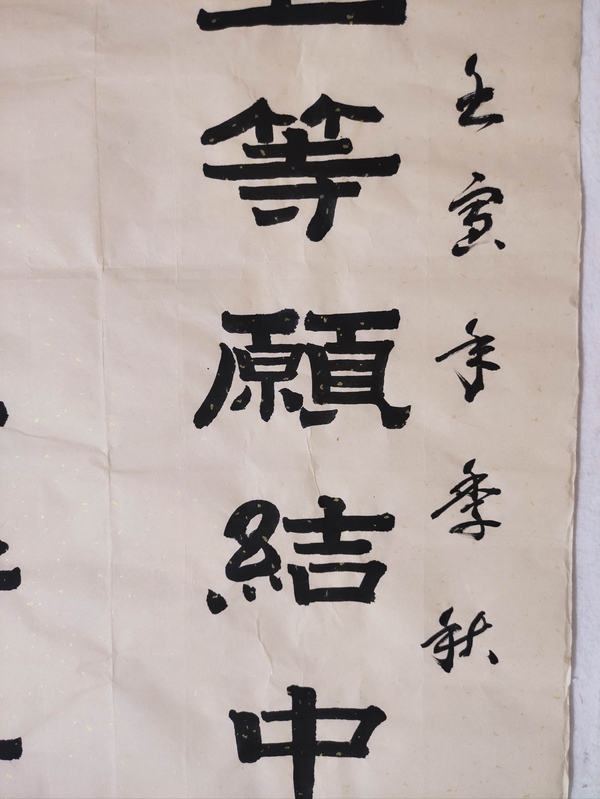 壬寅年季秋
等願結中